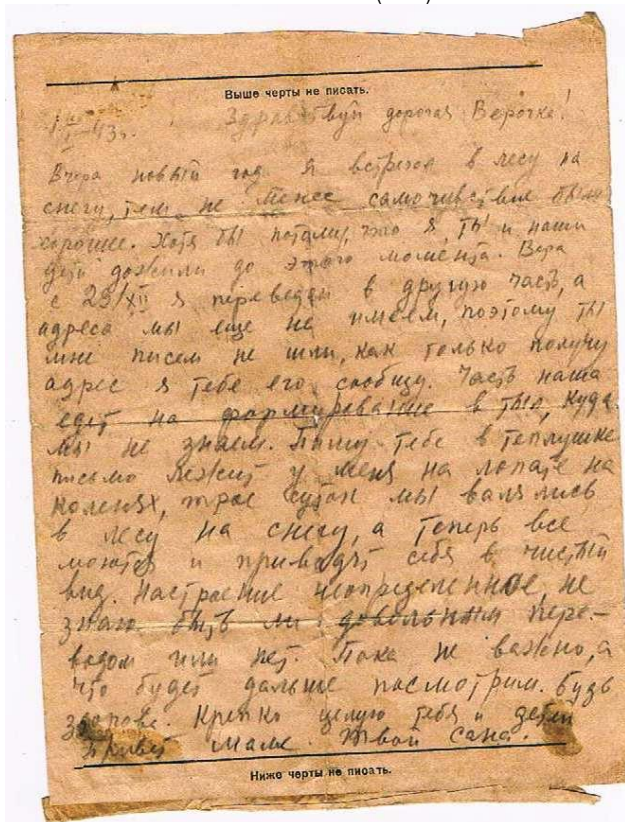 Выше черты не писать.
Здравствуй дорогая Верочка!
1/I-43г.
Вчера новый год я встречал в лесу на
снегу, тем не менее самочувствие было
хорошее. Хотя бы потому, что я, ты и наши
дети дожили до этого момента. Вера
с 29/XII я переведен в другую часть, а
адреса мы еще не имеем, поэтому ты
мне писем не шли, как только получу
адрес я тебе его сообщу. Часть наша
едет на формирование в тыл, куда
мы не знаем. Пишу тебе в теплушке
письмо лежит у меня на лопате на
коленях, трое суток мы валялись
в лесу на снегу, а теперь все
моются и приводят себя в чистый
вид. Настроение неопределенное, не
знаю быть ли довольным пере-
водом или нет. Пока не важно, а
что будет дальше посмотрим. Будь
здорова. Крепко целую тебя и детей
Привет маме. Твой Саша.
Ниже черты не писать.